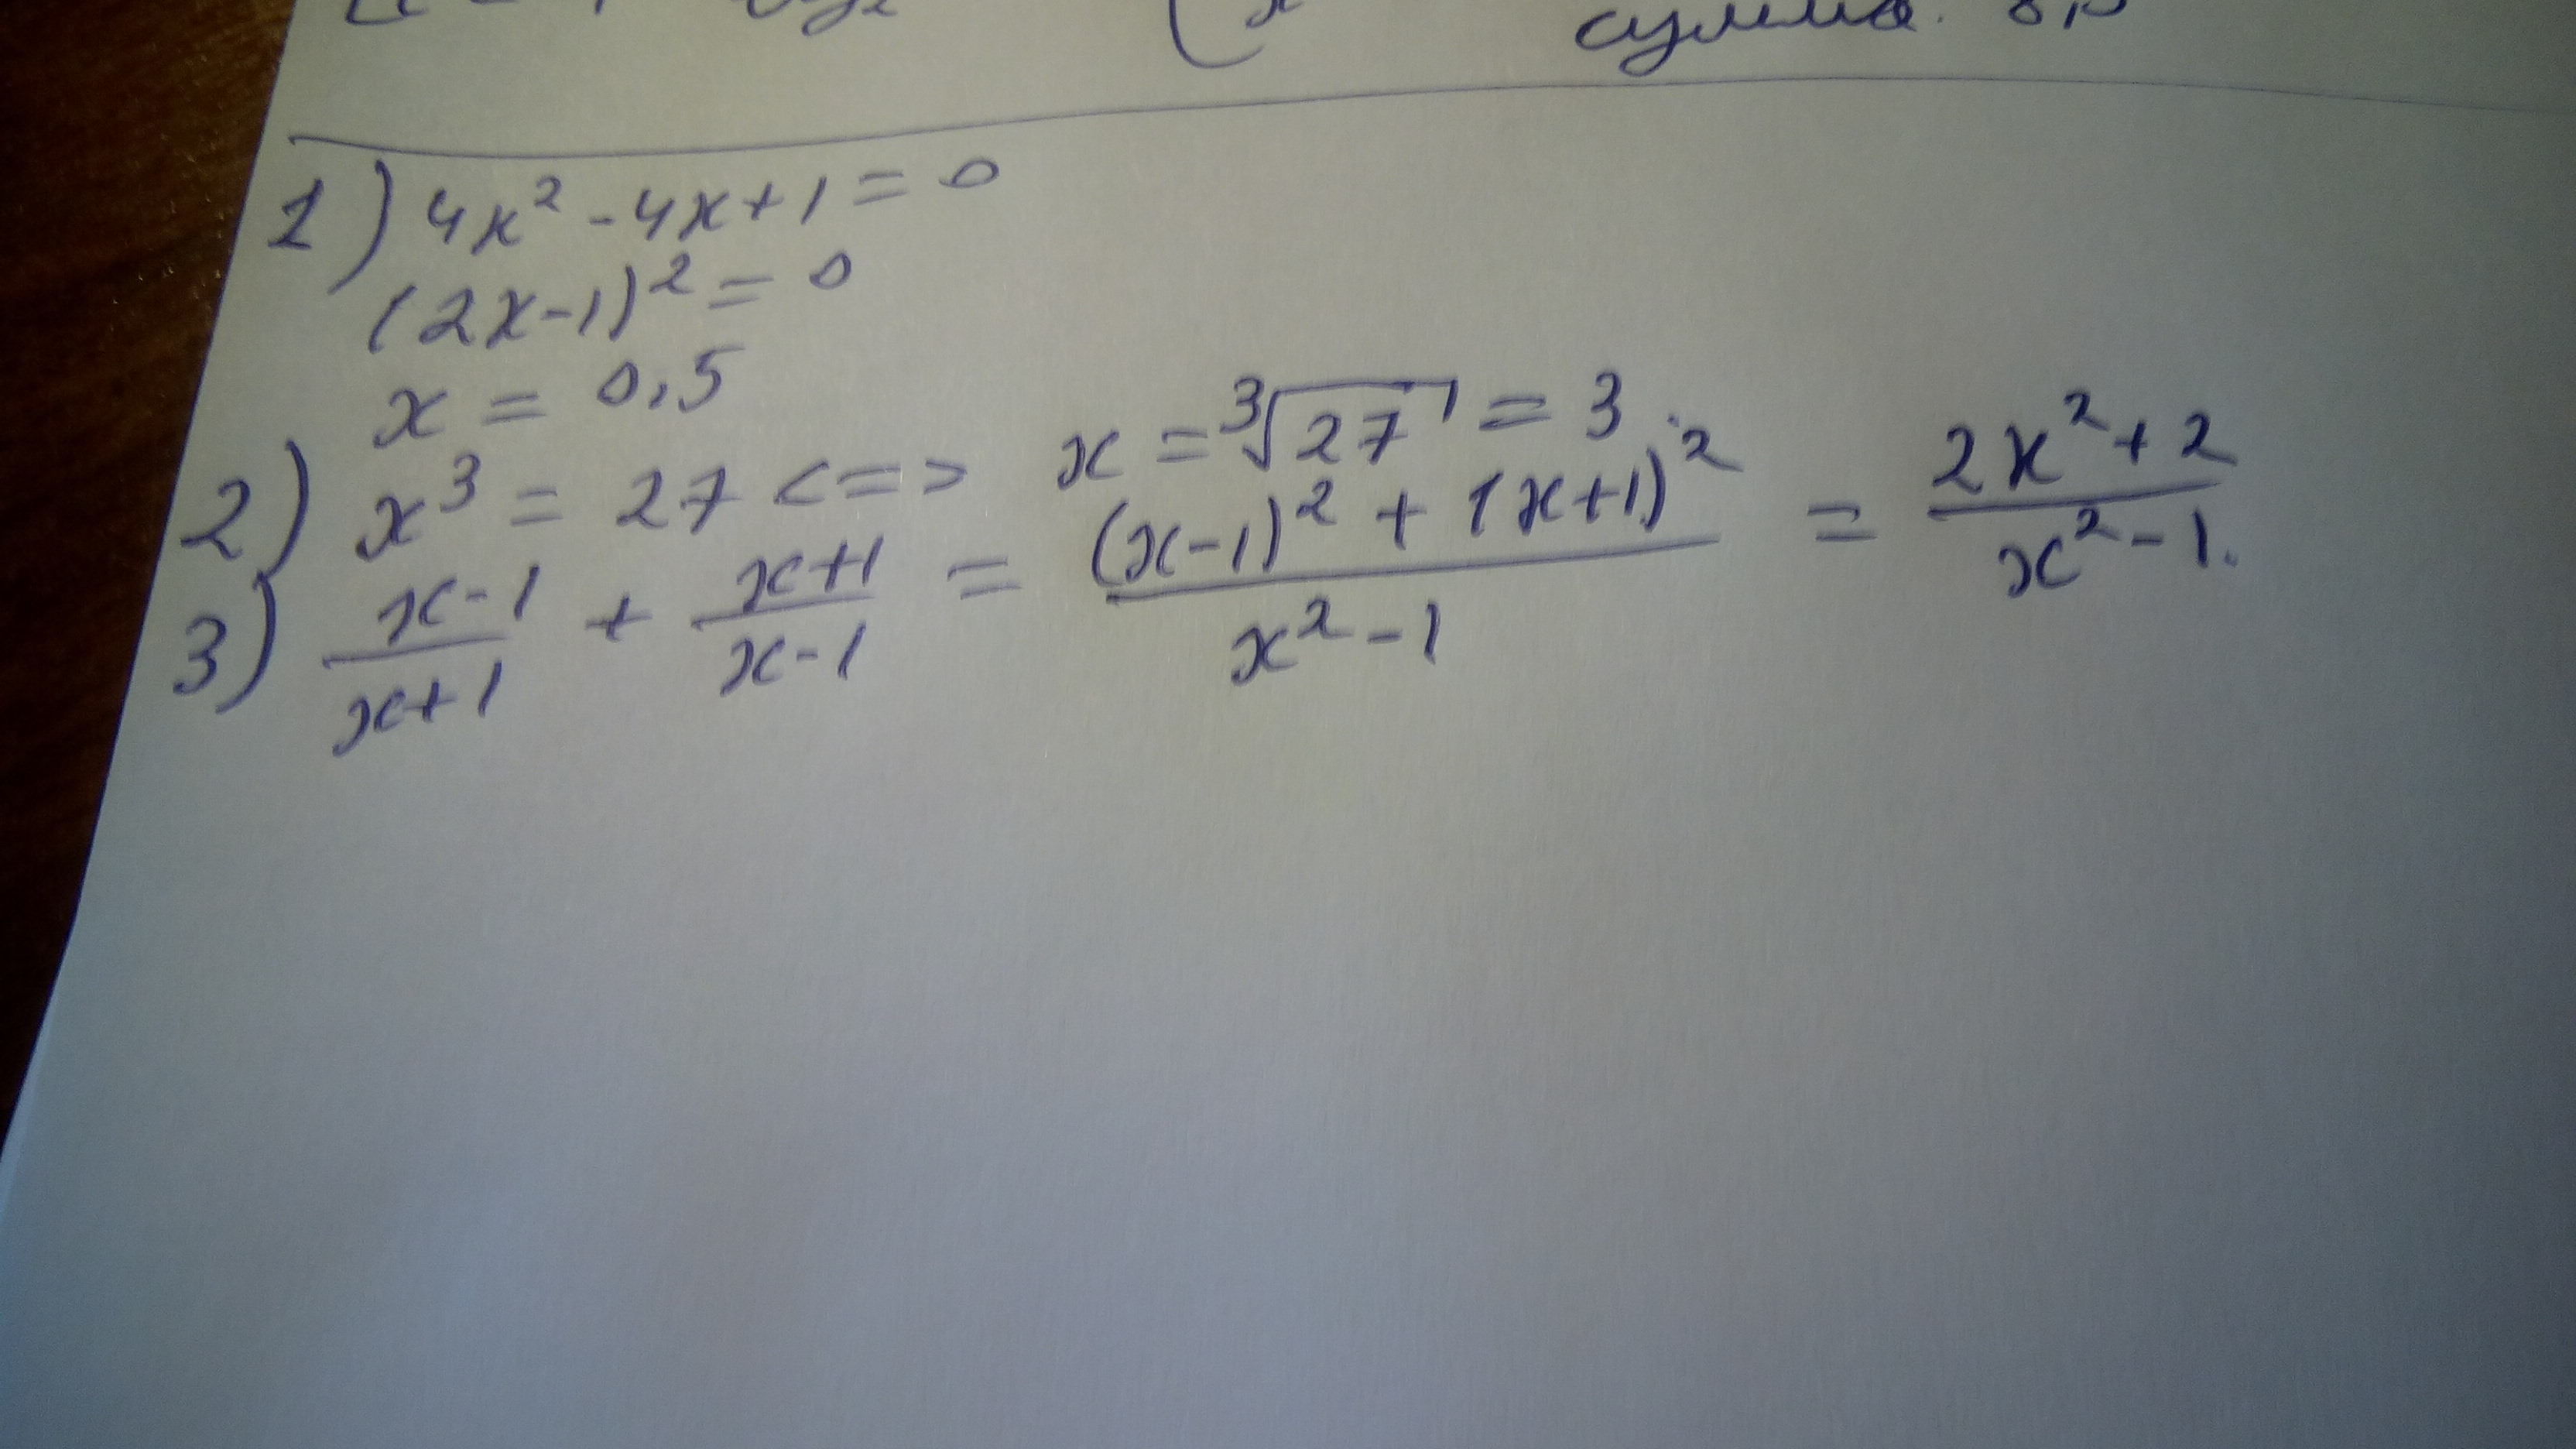 сумма.
1) 4x² - 4x + 1 = 0
(2x-1)² = 0
x = 0,5
2) x³ = 27 <=> x = ³√27 = 3
3) (x-1)/(x+1) + (x+1)/(x-1) = ((x-1)² + (x+1)²)/(x² - 1) = (2x² + 2)/(x² - 1).